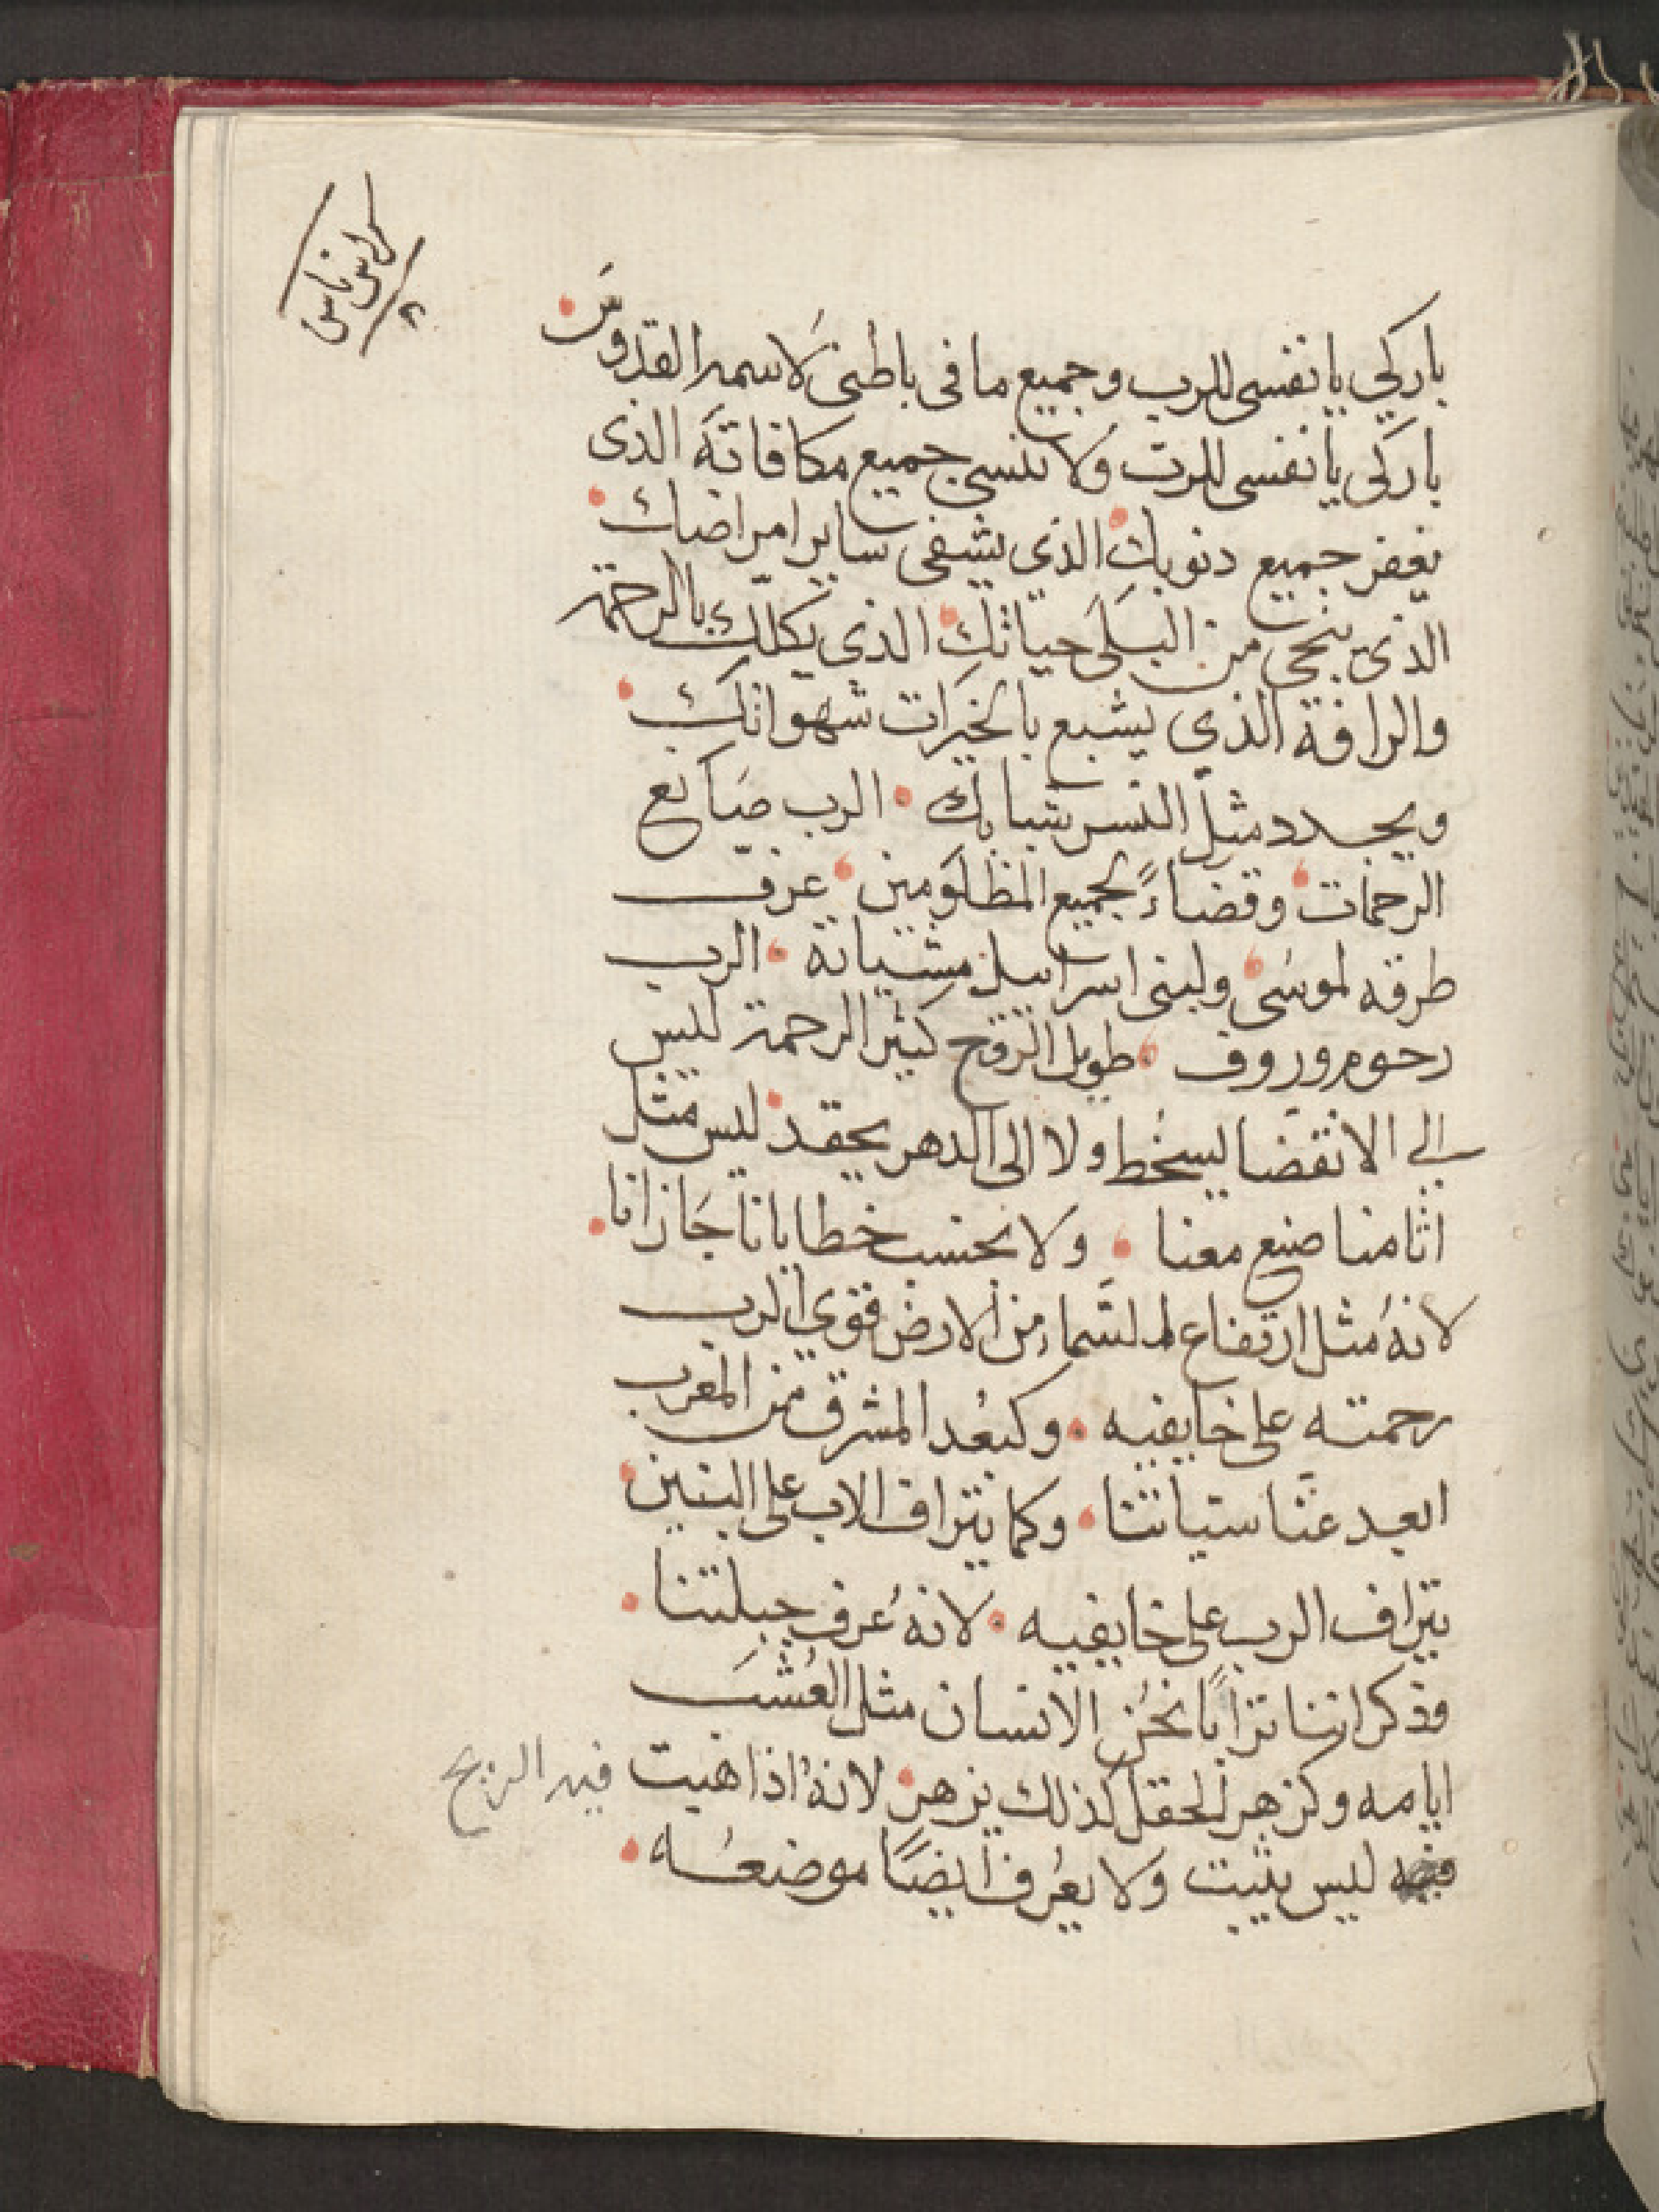 كراس ثاس
٢
باركي يا نفسي للرب وجميع ما في باطني لاسمه القدوس
باركي يا نفسي للرب ولا تنسي جميع مكافاته الذى
يغفر جميع دنوبك الذي يشفى ساير امراضك
الذى ينجى من البلى حياتك الذي يكللك بالرحمة
والرافة الذي يشبع بالخيرات شهواتك
ويجدد مثل النسر شبابك الرب صانع
الرحمات وقضاءً لجميع المظلومين عرف
طرقه لموسى ولبنى اسراييل مشياته الرب
رحوم وروف طويل الروح كثير الرحمة ليس
الي الانقضا يسخط ولا الى الدهر يحقد ليس مثل
اثامنا صنع معنا ولا بحسب خطايانا جازانا
لانه مثل ارتفاع السماء من الارض قوي الرب
رحمته على خايفيه وكبعد المشرق من المغرب
ابعد عنا سياتنا وكما يتراف الاب على البنين
يتراف الرب على خايفيه لانه عرف جبلتنا
وذكر اننا ترابًا نحن الانسان مثل العشب
ايامه وكزهر الحقل كذلك يزهر لانه اذا هبت فيه الريح
ليس يثبت ولا يعرف ايضًا موضعه